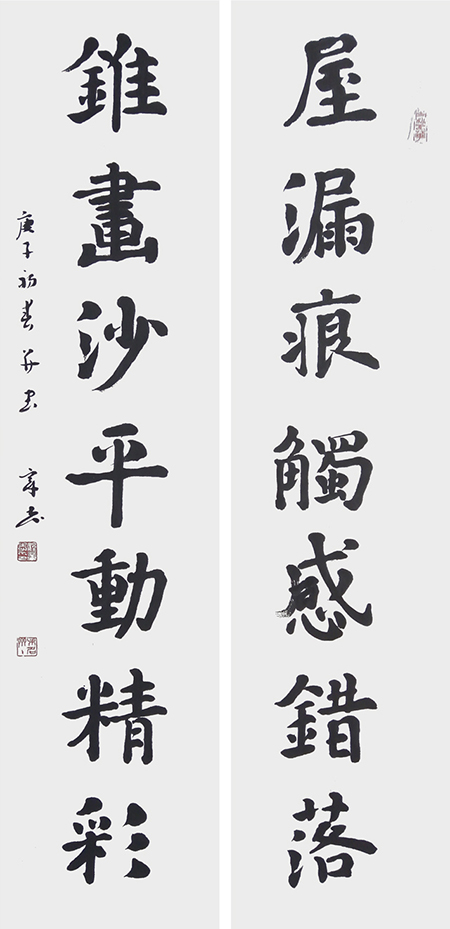 屋漏痕觸感錯落
錐畫沙平動精彩
庚子初春並書